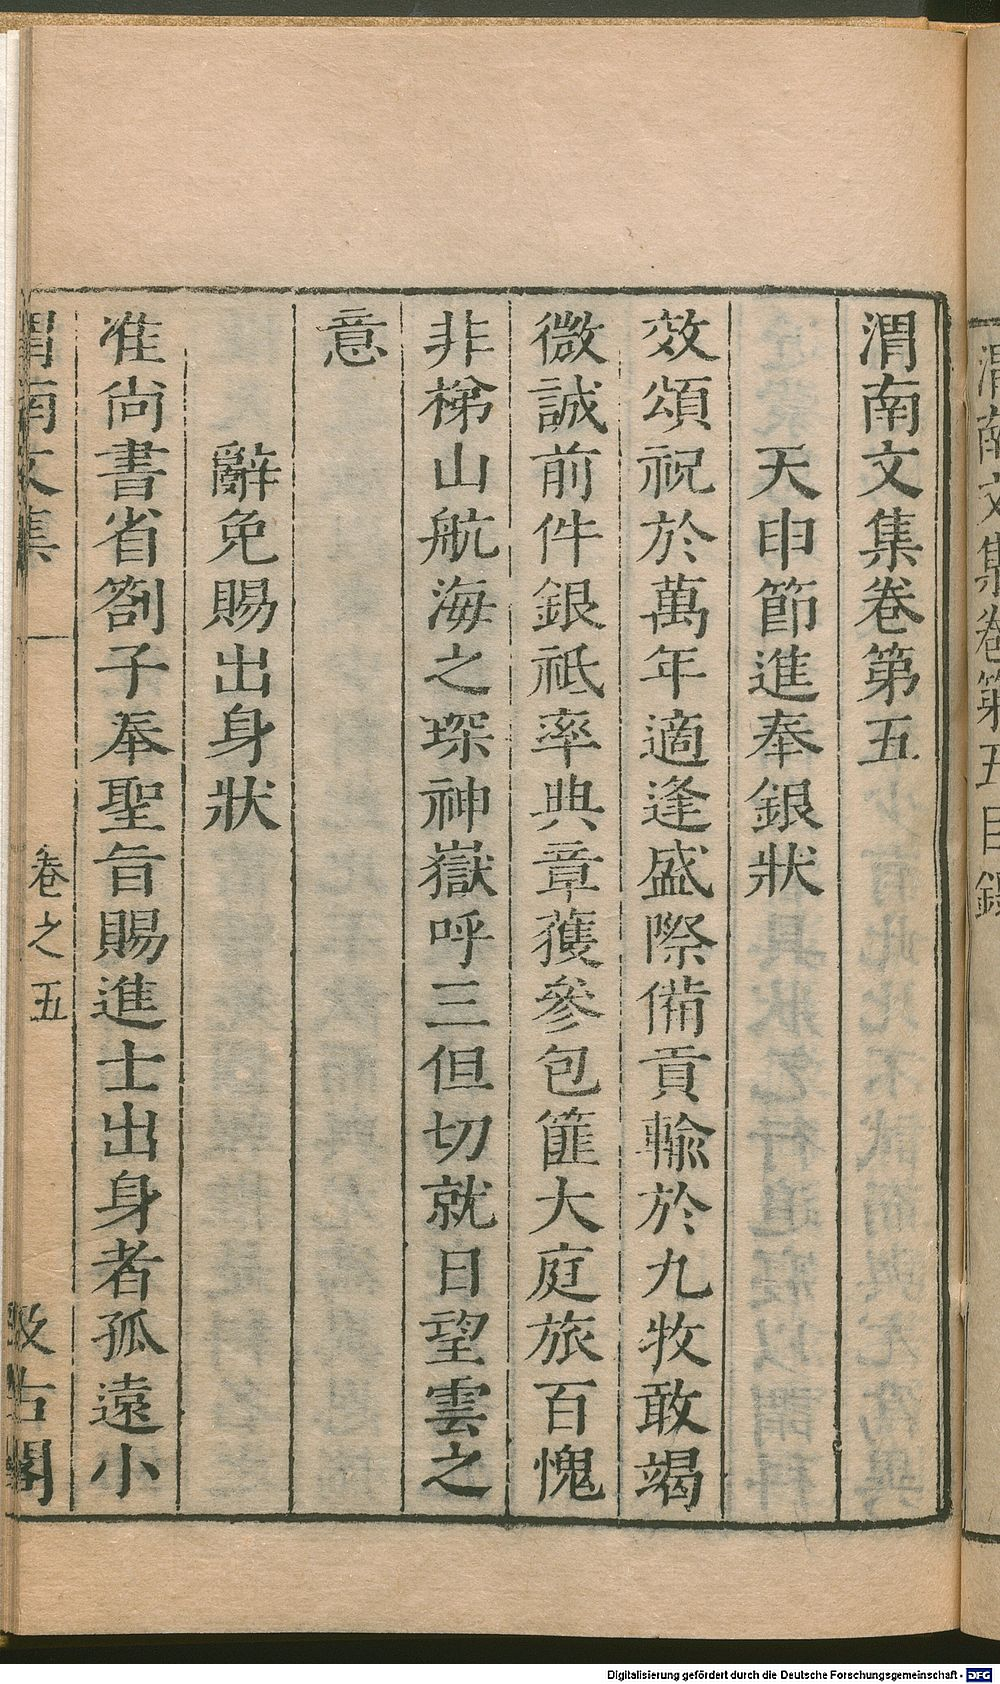 渭南文集卷第五目錄
渭南文集卷第五
天申節進奉銀狀
效頌祝於萬年適逢盛際備貢輸於九牧敢竭
微誠前件銀祗率典章獲參包篚大庭旅百愧
非梯山航海之琛神嶽呼三但切就日望雲之
意
辭免賜出身狀
准尚書省劄子奉聖旨賜進士出身者孤遠小
渭南文集 卷之五 汲古閣
Digitalisierung gefördert durch die Deutsche Forschungsgemeinschaft - DFG